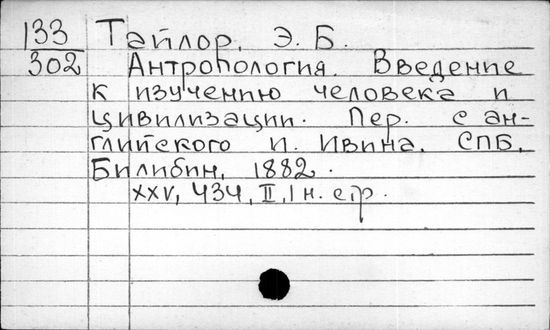 133 Тайлор, Э. Б.
302 Антропология. Введение
к изучению человека и
цивилизации. Пер. с ан-
глийского И. Ивина. СПБ,
Билибин, 1882.
XXV, 434, II, 1 н. стр.